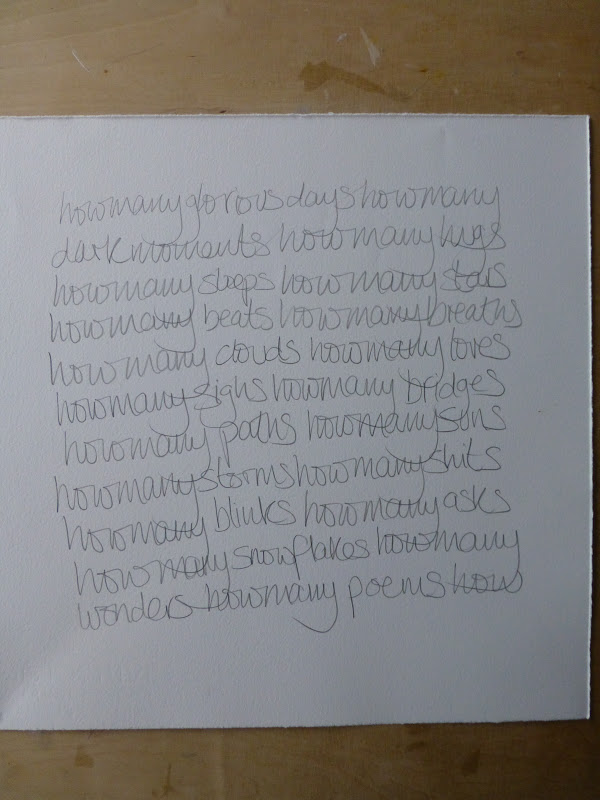 howmany glorious days howmany
darkmoments howmany hugs
howmany sleeps howmany stars
howmany beats howmany breaths
howmany clouds howmany loves
howmany sighs howmany bridges
howmany paths howmany
howmany storms howmany shits
howmany blinks howmany asks
howmany snowflakes howmany
wonders howmany poems how